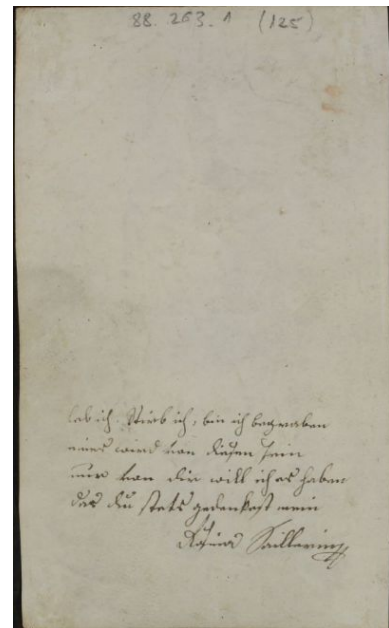 88.263.1 (125)
leb ich, Sterb ich, bin ich begraben
eines wird von diesen sein
nur von dir will ich es haben
das du stets gedenkest mein